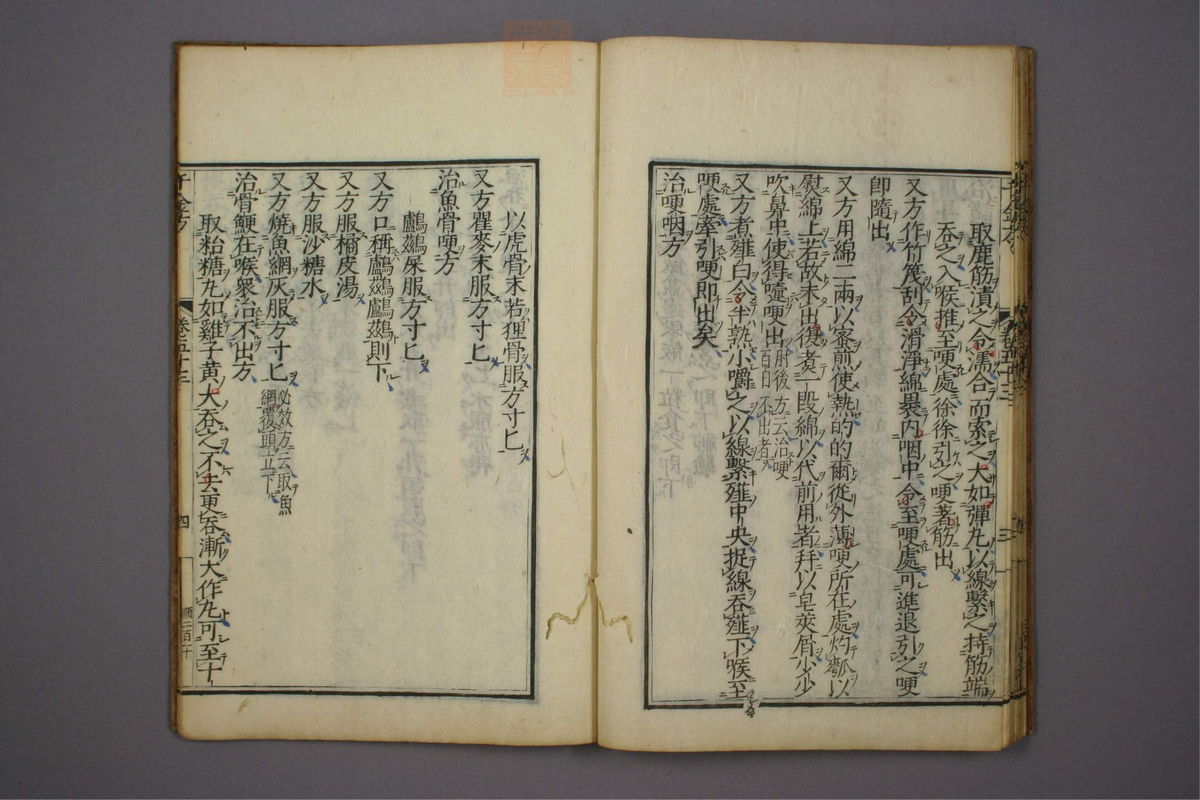 取鹿筋漬之令濡合而索之大如彈丸以線繫之持筋端
吞之入喉推至哽處徐徐引之哽著筋出
又方作竹篾刮令滑淨綿裹內咽中令至哽處可進退引之哽
卽隨出
又方用綿二兩以蜜煎使熱的的爾從外薄哽所在處灼瓠以
熨綿上若故未出復煮一段綿以代前用者并以皂莢屑少少
吹鼻中使得嚏哽出肘後方云治哽百日不出者
又方煮薤白令半熟小嚼之以線繫薤中央捉線吞薤下喉至
哽處牽引哽即出矣
治哽咽方
以虎骨末若狸骨服方寸匕
又方瞿麥末服方寸匕
治魚骨哽方
鸕鷀屎服方寸匕
又方口稱鸕鷀鸕鷀則下
又方服橘皮湯
又方服沙糖水
又方燒魚網灰服方寸匕必效方云取魚網覆頭立下
治骨鯁在喉衆治不出方
取粘糖丸如雞子黃大吞之不去更吞漸大作丸可至十
千金方 卷五十三 四